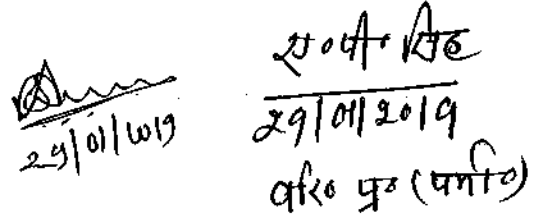 29/01/2019
एस०पी० सिंह
29/01/2019
वरि० प्र० (पर्या०)